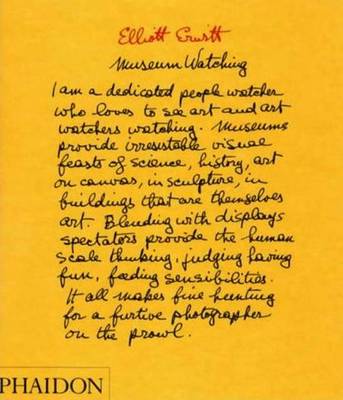 Elliott Erwitt
Museum Watching
I am a dedicated people watcher
who loves to see art and art
watchers watching. Museums
provide irresistable visual
feasts of science, history, art
on canvas, in sculpture, in
buildings that are themselves
art. Blending with displays
spectators provide the human
scale thinking, judging having
fun, feeding sensibilities.
It all makes fine hunting
for a furtive photographer
on the prowl.
PHAIDON